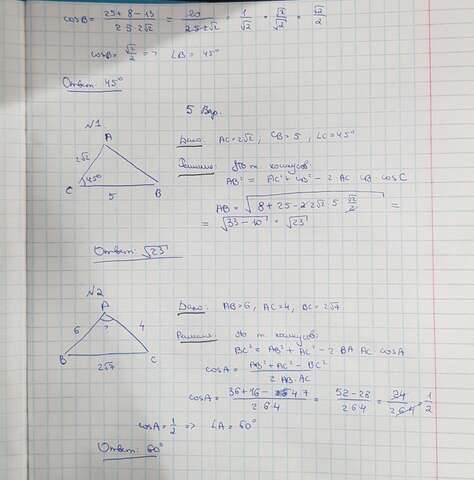 cosB = (25+8-13)/(2·5·2√2) = 20/(2·5·2√2) = 1/√2 · √2/√2 = √2/2
cosB = √2/2 => ∠B = 45°
Ответ: 45°
5 Вар.
№1
A
2√2
45°
C 5 B
Дано: AC=2√2, CB=5, ∠C=45°
Решение: По т косинусов:
AB² = AC²+CB² - 2 AC CB cosC
AB = √(8+25-2 2√2 5 √2/2) =
= √(33-10) = √23
Ответ: √23
№2
A
6 ? 4
B 2√7 C
Дано: AB=6, AC=4, BC=2√7
Решение: По т косинусов:
BC² = AB² + AC² - 2 BA AC cosA
cosA = (AB²+AC²-BC²)/(2 AB AC)
cosA = (36+16-4 7)/(2 6 4) = (52-28)/(2 6 4) = 24/(2 6 4) = 1/2
cosA = 1/2 => ∠A = 60°
Ответ: 60°